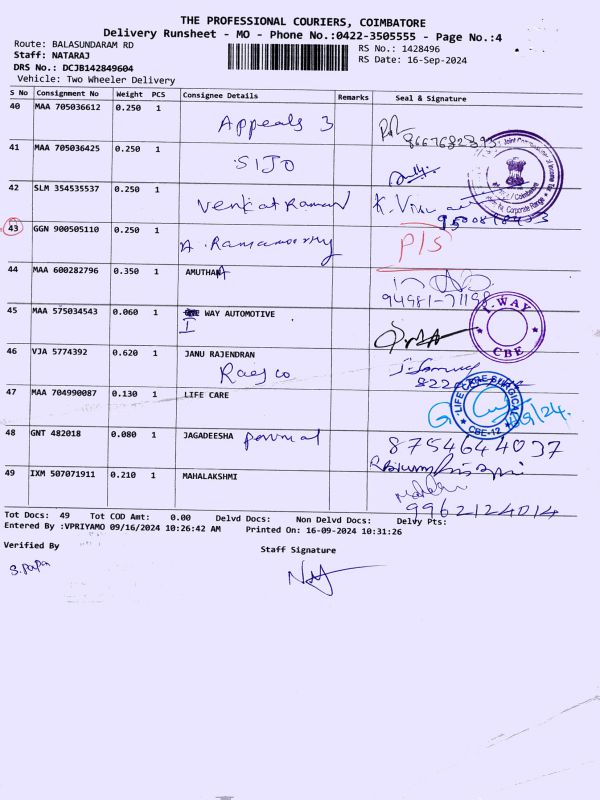 THE PROFESSIONAL COURIERS, COIMBATORE
Delivery Runsheet - MO - Phone No.:0422-3505555 - Page No.:4
Route: BALASUNDARAM RD
RS No.: 1428496
Staff: NATARAJ
RS Date: 16-Sep-2024
DRS No.: DCJB142849604
Vehicle: Two Wheeler Delivery
S No Consignment No Weight PCS Consignee Details Remarks Seal & Signature
40 MAA 705036612 0.250 1 Appeals 3
41 MAA 705036425 0.250 1 SIJO
42 SLM 354535537 0.250 1 Venkat Raman
43 GGN 900505110 0.250 1 P/S
44 MAA 600282796 0.350 1 AMUTHA
94981-71198
45 MAA 575034543 0.060 1 WAY AUTOMOTIVE
I
I.WAY
CBE
46 VJA 5774392 0.620 1 JANU RAJENDRAN
47 MAA 704990087 0.130 1 LIFE CARE
LIFE CARE SURGICALS
CBE-12
48 GNT 482018 0.080 1 JAGADEESHA 8754644037
49 IXM 507071911 0.210 1 MAHALAKSHMI
9962124014
Tot Docs: 49 Tot COD Amt: 0.00 Delvd Docs: Non Delvd Docs: Delvy Pts:
Entered By :VPRIYAMO 09/16/2024 10:26:42 AM Printed On: 16-09-2024 10:31:26
Verified By
Staff Signature
S.papa